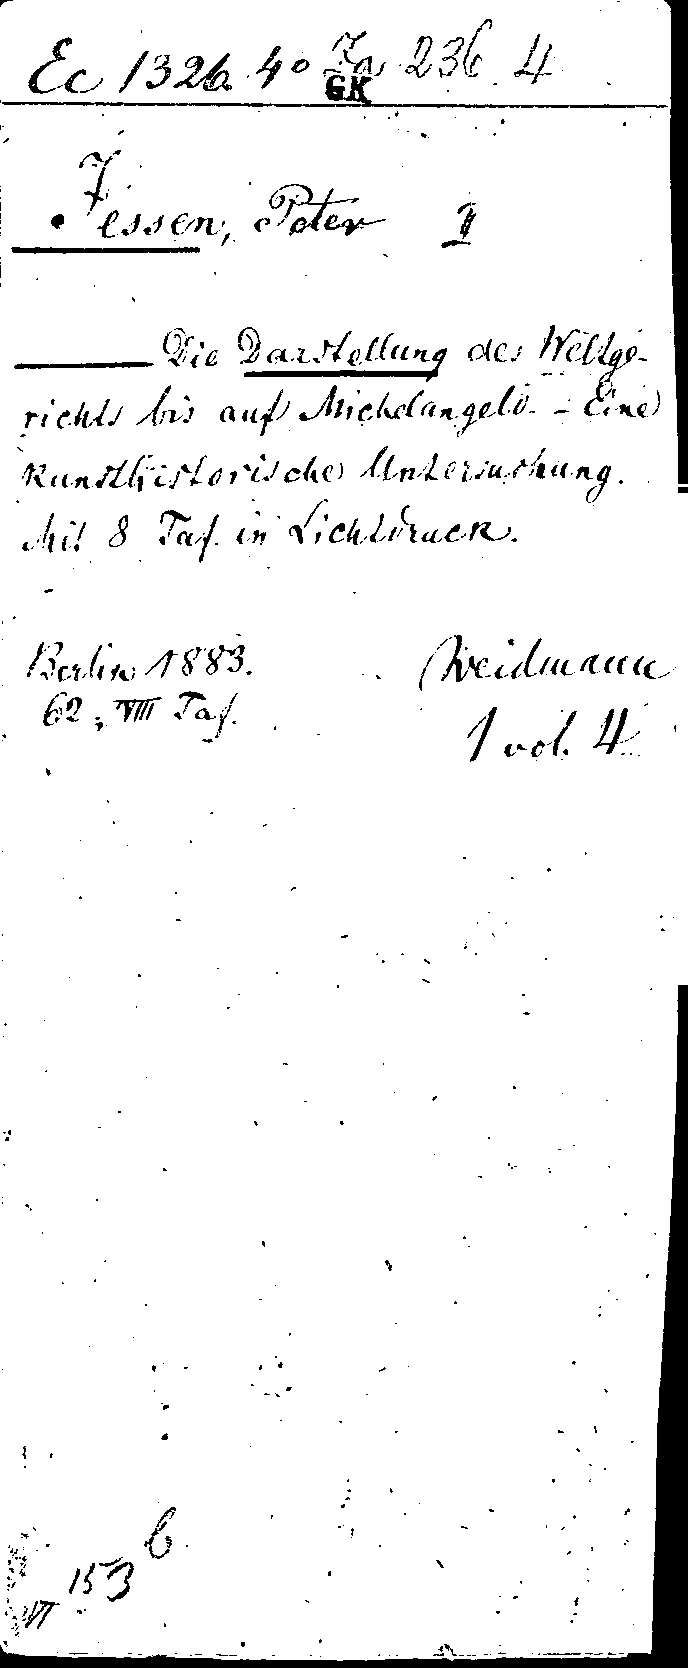 Ec 132b 4° Ja 236 4
GK
Jessen, Peter II
Die Darstellung des Weltge-
richts bis auf Michelangelo. - Eine
kunsthistorische Untersuchung.
Mit 8 Taf. in Lichtdruck.
Berlin 1883. Weidmann
62, VIII Taf.
1 vol. 4
VI 153 b